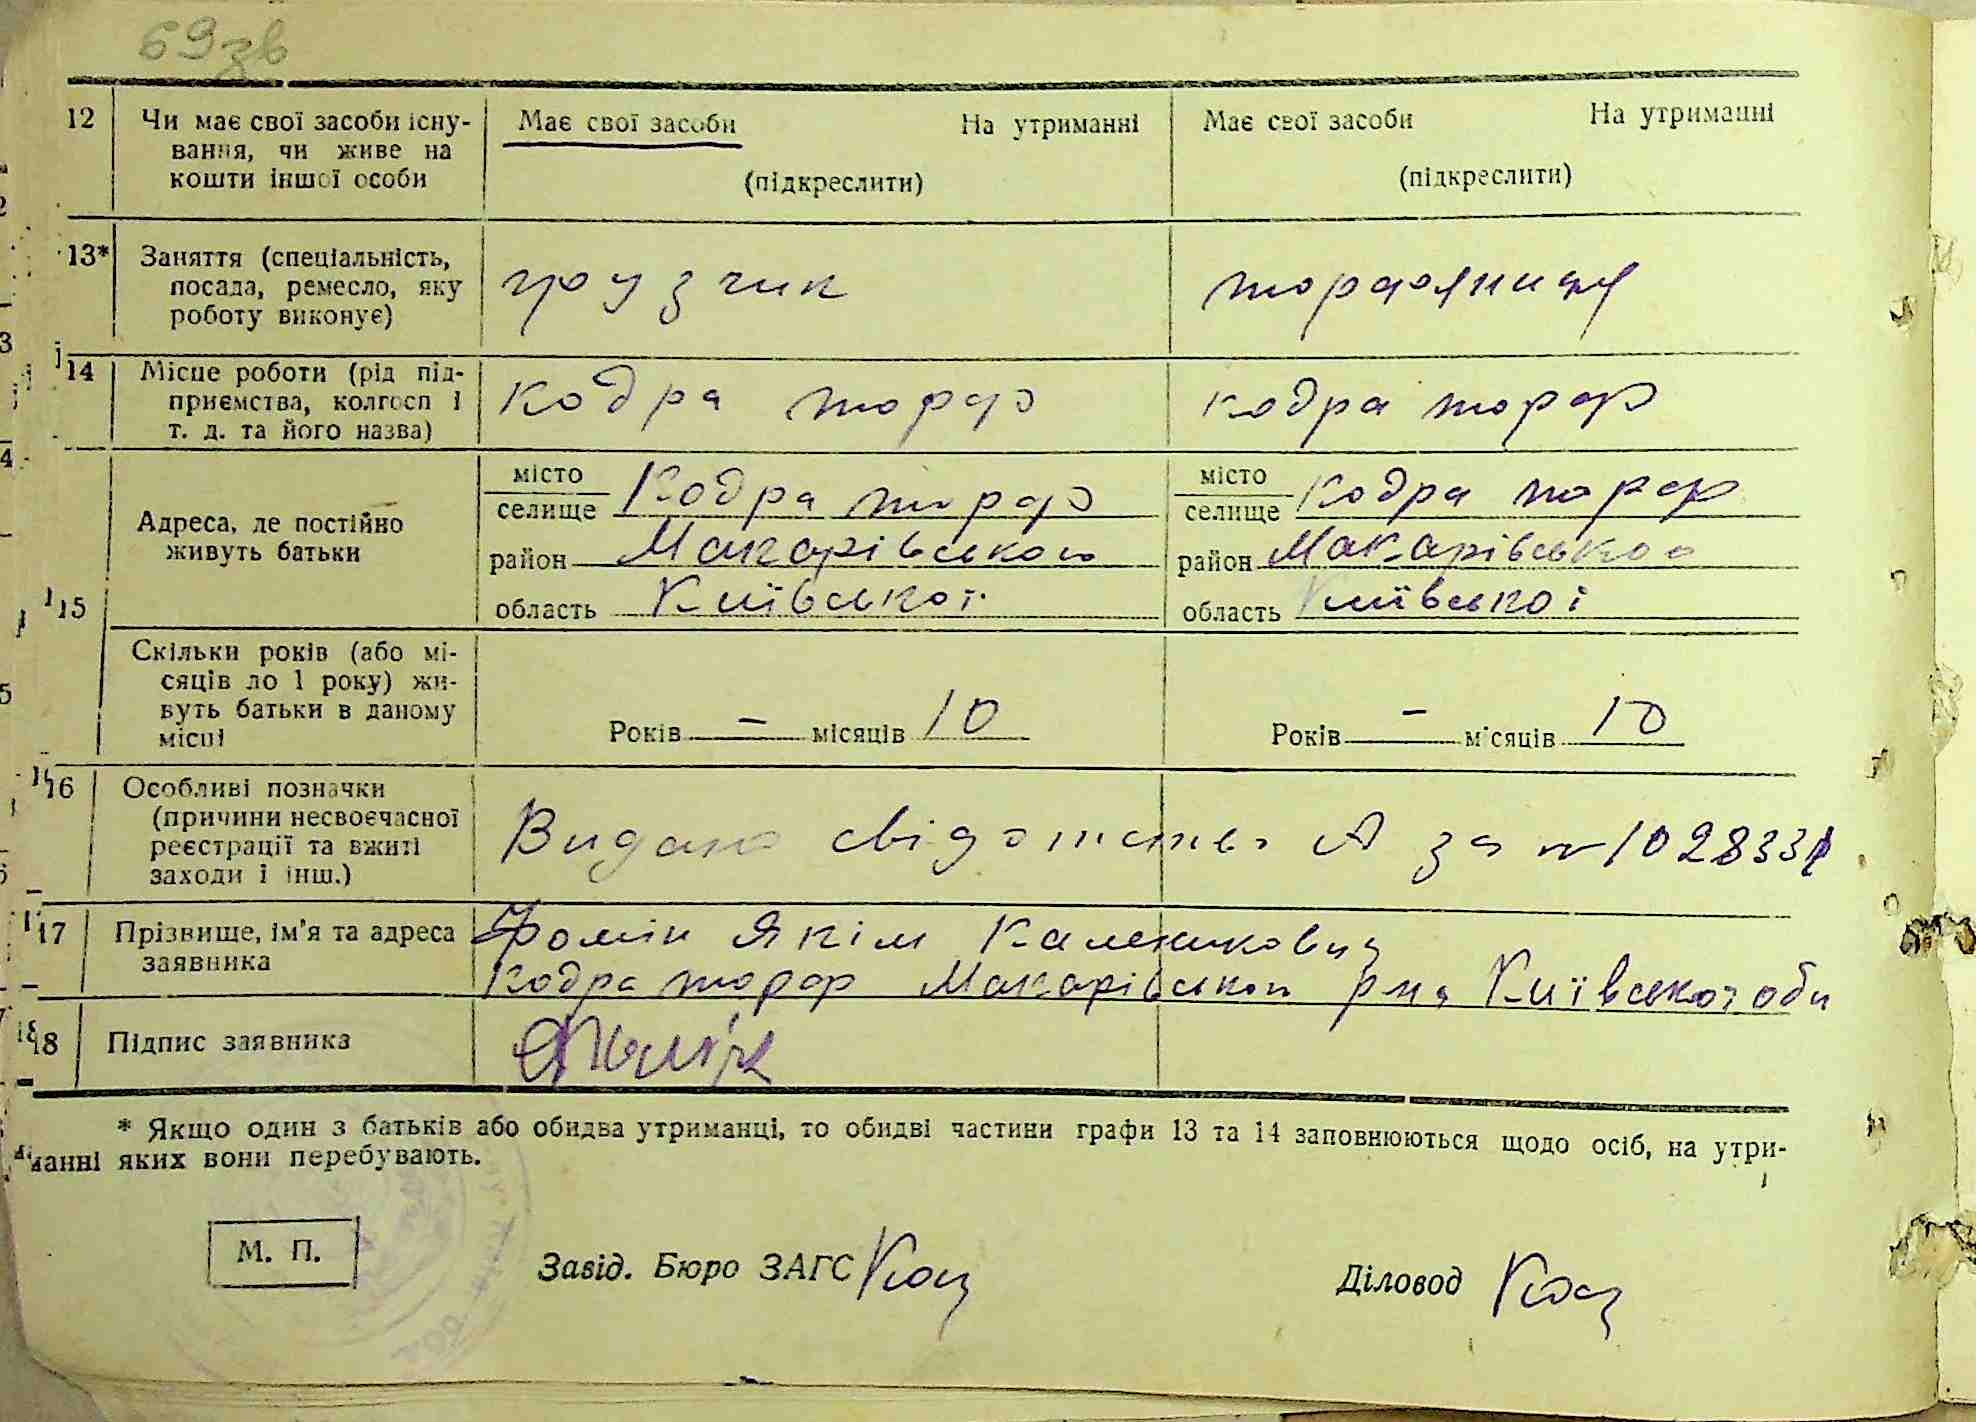 69зв
12 Чи має свої засоби існу- Має свої засоби На утриманні Має свої засоби На утриманні
вання, чи живе на
кошти іншої особи (підкреслити) (підкреслити)
13* Заняття (спеціальність,
посада, ремесло, яку грузчик торфяниця
роботу виконує)
14 Місце роботи (рід під-
приємства, колгосп і Кодра торф кодра торф
т. д. та його назва)
місто місто
селище Кодра торф селище Кодра торф
Адреса, де постійно
живуть батьки район Макарівського район Макарівського
15 область Київської область Київської
Скільки років (або мі-
сяців до 1 року) жи-
вуть батьки в даному Років – місяців 10 Років – місяців 10
місці
16 Особливі позначки
(причини несвоєчасної
реєстрації та вжиті Видано свідотство А за №
заходи і інш.)
17 Прізвище, ім'я та адреса Фомін Якім Каленикович
заявника Кодра торф Макарівського р-на Київської обл
18 Підпис заявника
* Якщо один з батьків або обидва утриманці, то обидві частини графи 13 та 14 заповнюються щодо осіб, на утри-
манні яких вони перебувають.
М. П. Завід. Бюро ЗАГС Коц Діловод Коц